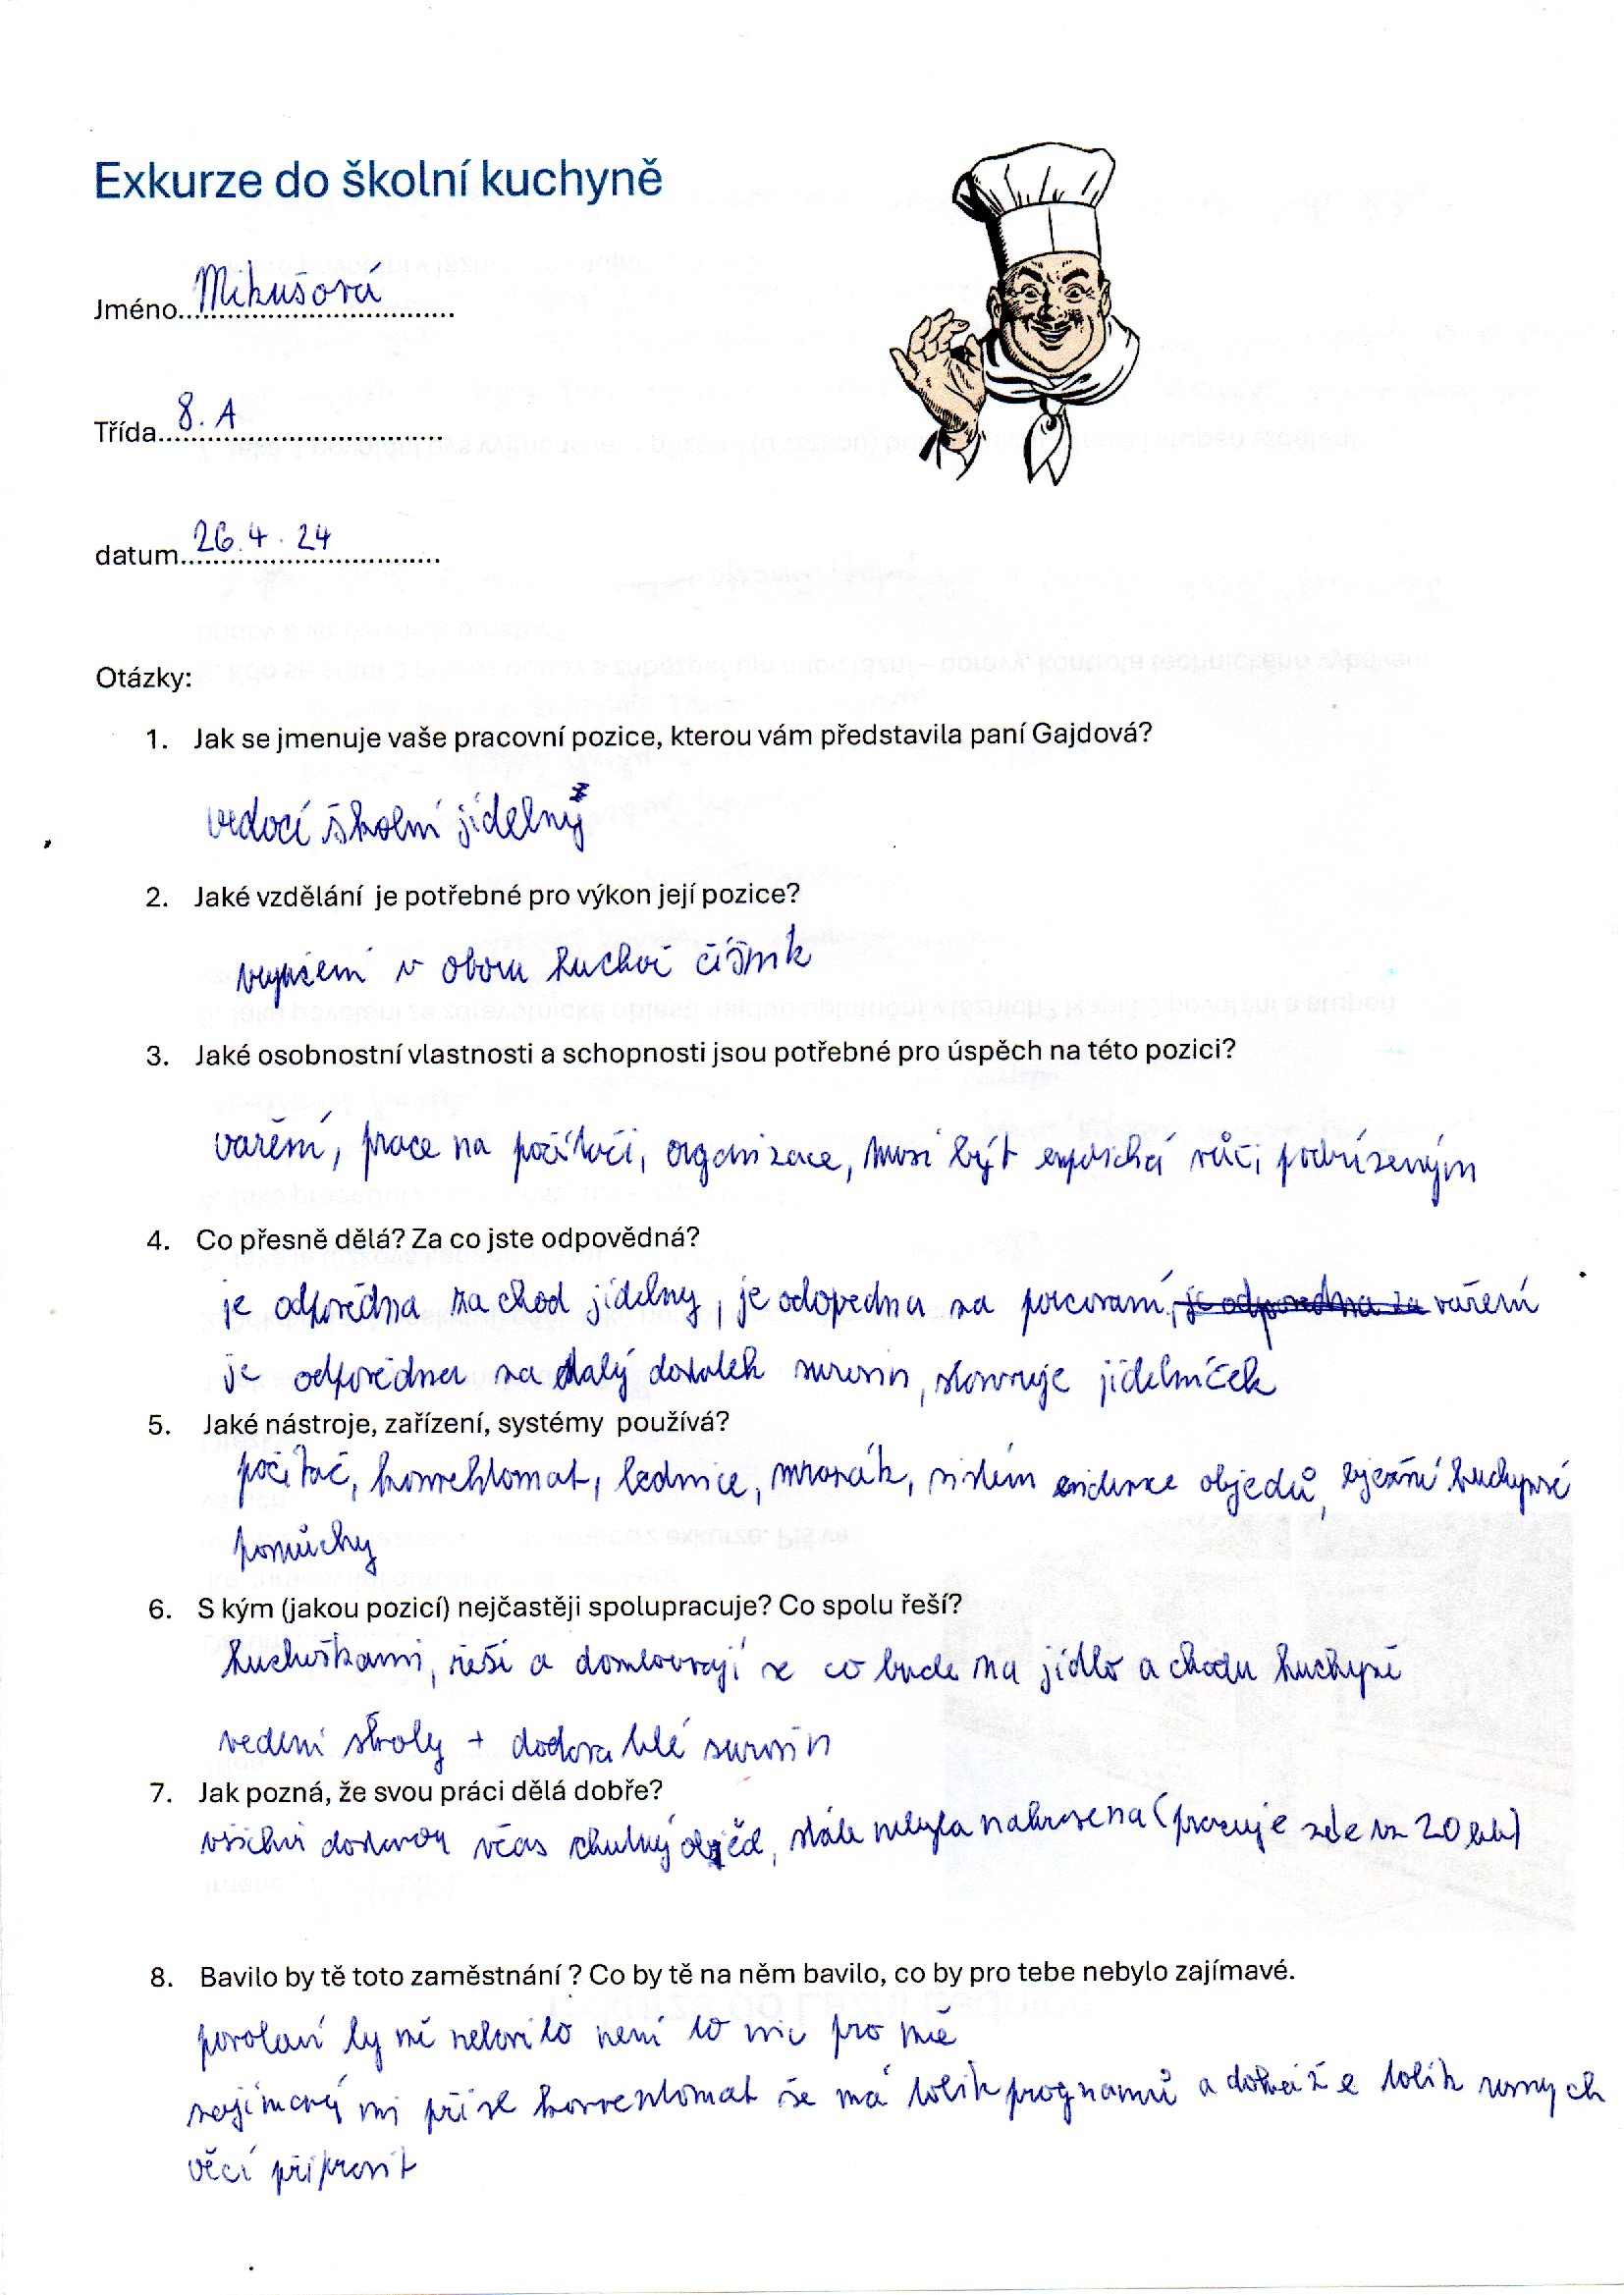 Exkurze do školní kuchyně
Jméno Mikušová
Třída 8. A
datum 26. 4. 24
Otázky:
1. Jak se jmenuje vaše pracovní pozice, kterou vám představila paní Gajdová?
vedocí školní jídelny
2. Jaké vzdělání je potřebné pro výkon její pozice?
v oboru kuchoř číšník
3. Jaké osobnostní vlastnosti a schopnosti jsou potřebné pro úspěch na této pozici?
vaření, prace na počítači, organizace, musí být vůči podřízeným
4. Co přesně dělá? Za co jste odpovědná?
je odpovědna za chod jídelny, je odopvedna za porcovaní, je odpovedna za vaření
je odpovědna za stalý dostatek surovin, stanovuje jídelníček
5. Jaké nástroje, zařízení, systémy používá?
počítač, konvektomat, lednice, mrazák, sistém evidence objedů, kuchyňské
pomůcky
6. S kým (jakou pozicí) nejčastěji spolupracuje? Co spolu řeší?
kuchařkami, řeší a domlouvají se co bude na jídlo a chodu kuchyně
vedení školy + surovin
7. Jak pozná, že svou práci dělá dobře?
všichni dostanou včas chutný oběd, stále nebyla nahrazena (pracuje zde už 20 let)
8. Bavilo by tě toto zaměstnání ? Co by tě na něm bavilo, co by pro tebe nebylo zajímavé.
povolaní by mě nebavilo není to nic pro mě
zajímavý mi příšel konvektomat že má tolik programů a dokáže tolik
věcí připravit